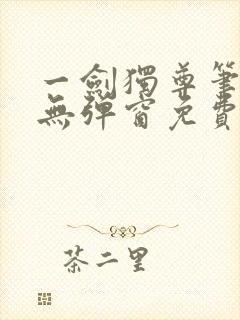 一劍獨尊筆
無彈窗免費
茶二里